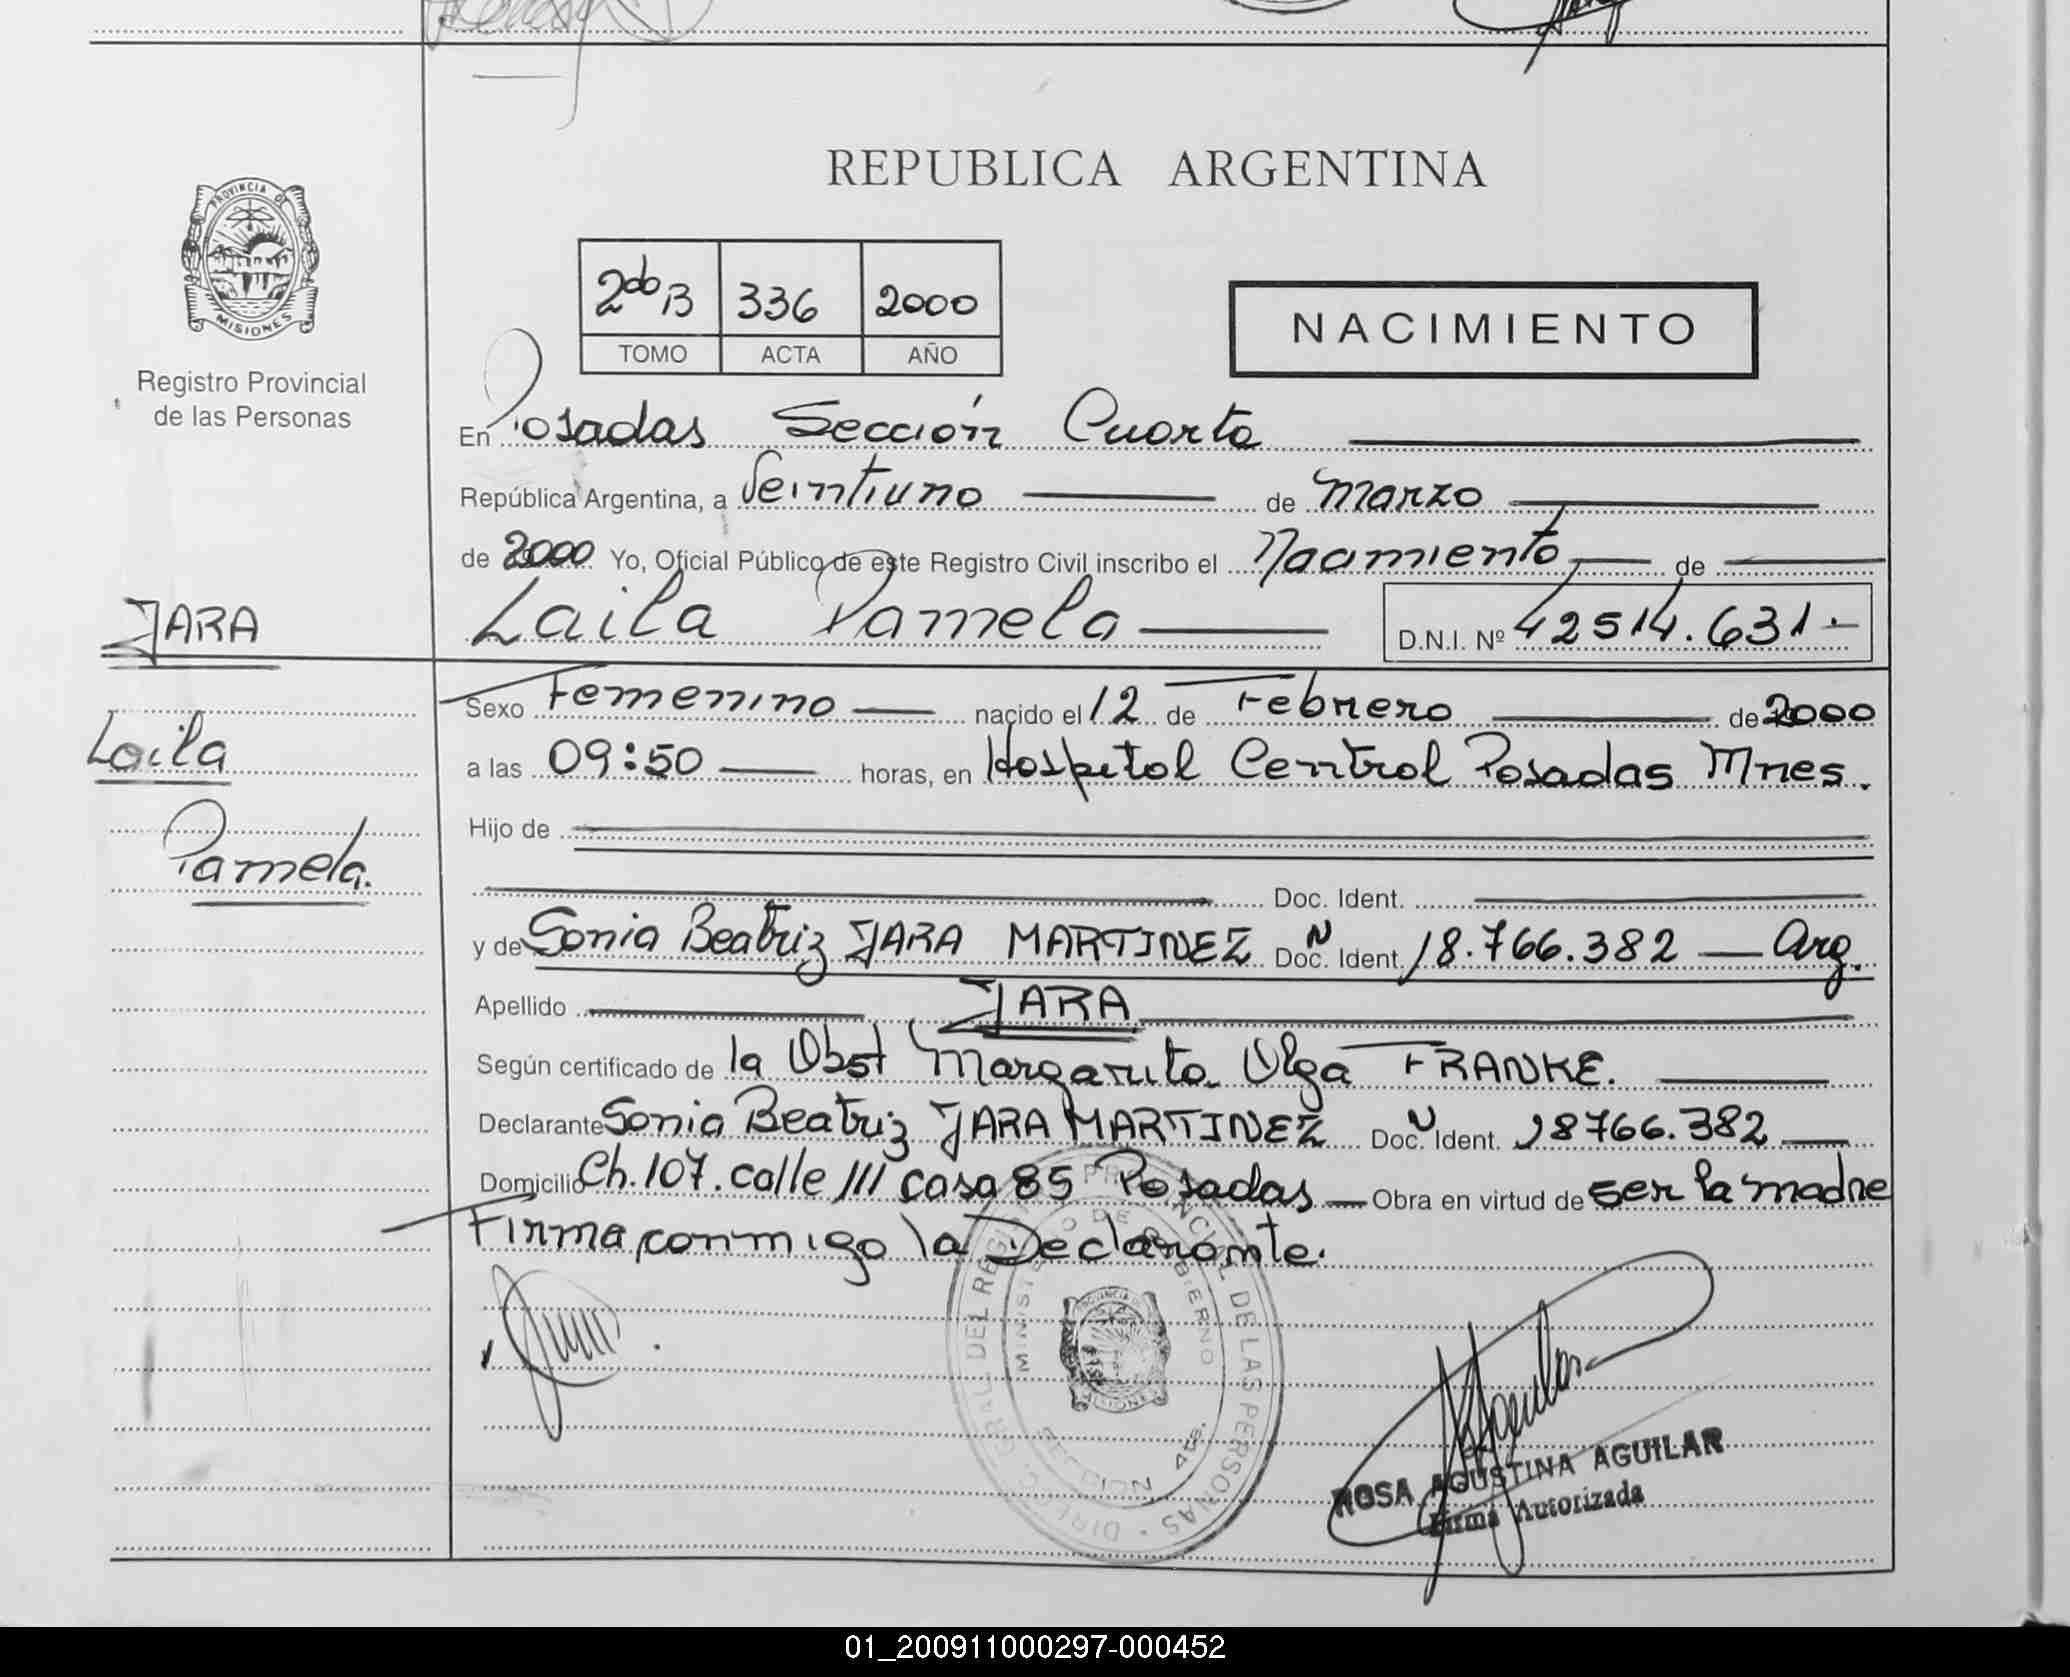 REPUBLICA ARGENTINA
PROVINCIA DE
MISIONES
Registro Provincial
de las Personas
2do B 336 2000
TOMO ACTA AÑO
NACIMIENTO
En Posadas Sección Cuarta
República Argentina, a Veintiuno de Marzo
de 2000 Yo, Oficial Público de este Registro Civil inscribo el Nacimiento de
JARA
Laila Pamela D.N.I. Nº 42514.631.-
Laila
Pamela.
Sexo Femenino nacido el 12 de Febrero de 2000
a las 09:50 horas, en Hospital Central Posadas Mnes.
Hijo de
Doc. Ident.
y de Sonia Beatriz JARA MARTINEZ Doc. N Ident. 18.766.382 — Arg.
Apellido JARA
Según certificado de la Obst Margarita Olga FRANKE.
Declarante Sonia Beatriz JARA MARTINEZ Doc. N Ident. 18766.382
Domicilio Ch. 107. calle III casa 85 Posadas — Obra en virtud de ser la madre
Firma conmigo la Declarante.
DIRECC. GRAL. DEL REGISTRO PROVINCIAL DE LAS PERSONAS
MINISTERIO DE GOBIERNO
SECCION 4ta.
ROSA AGUSTINA AGUILAR
Firma Autorizada
01_200911000297-000452